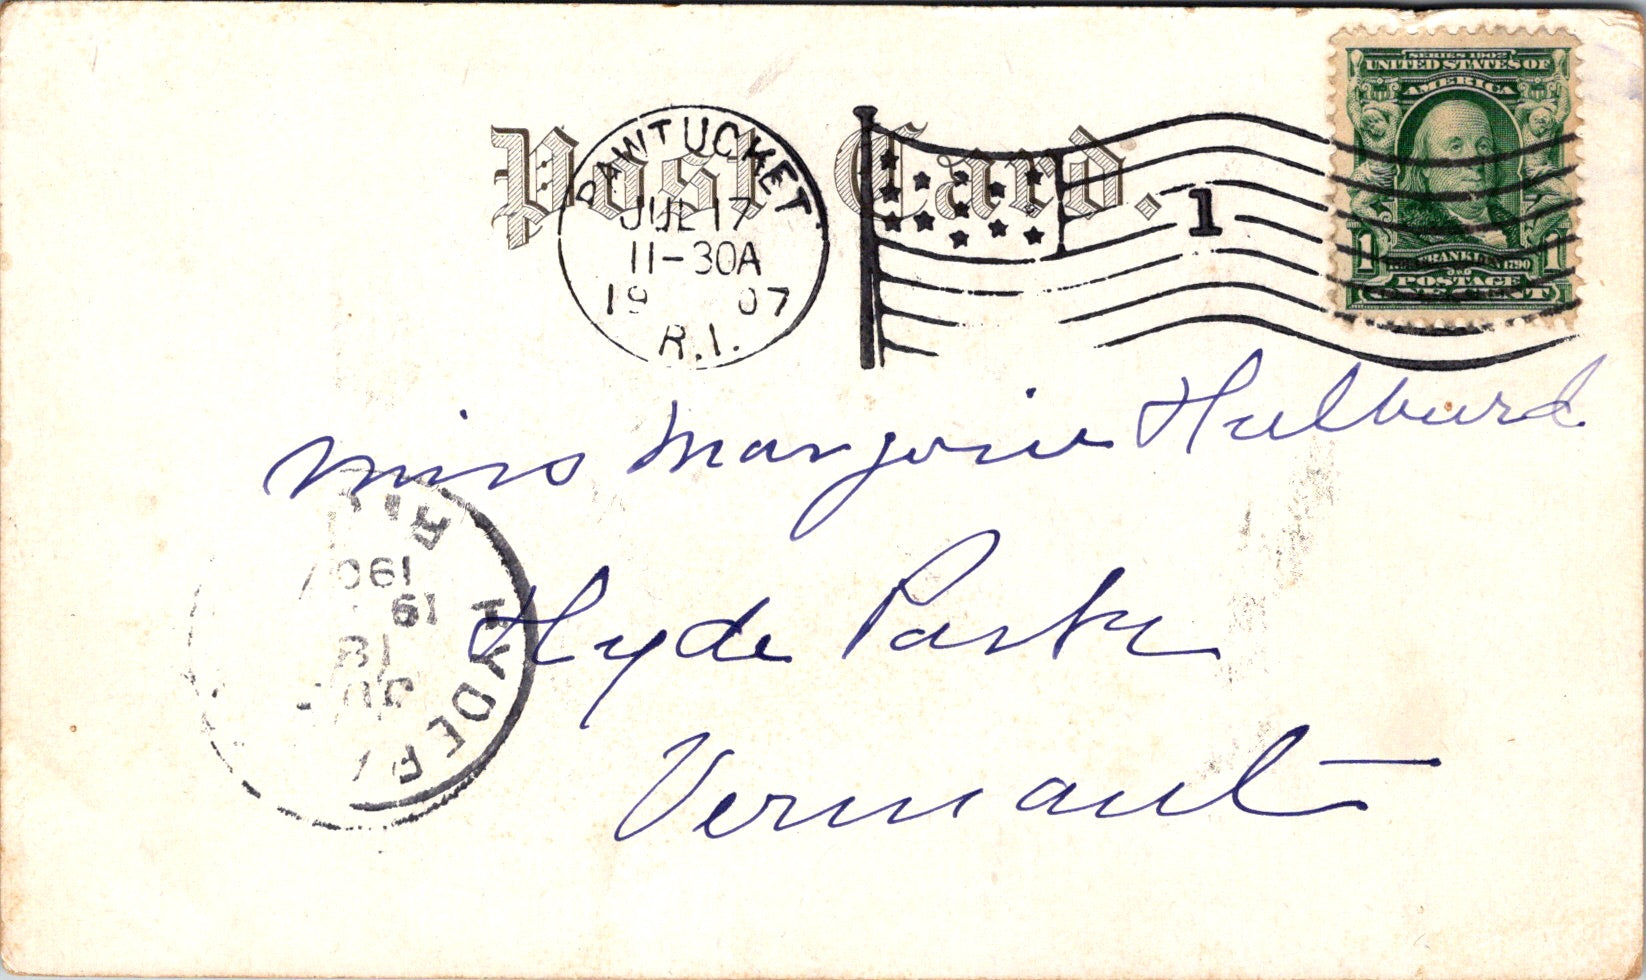 Post Card.
PAWTUCKET
JUL 17
11-30A
1907
R.I.
1
SERIES 1902
UNITED STATES OF
AMERICA
1 FRANKLIN 1790 1
POSTAGE
ONE CENT
Miss Marjorie Hulburd
Hyde Park
Vermont
HYDE P
JUL
18
1907